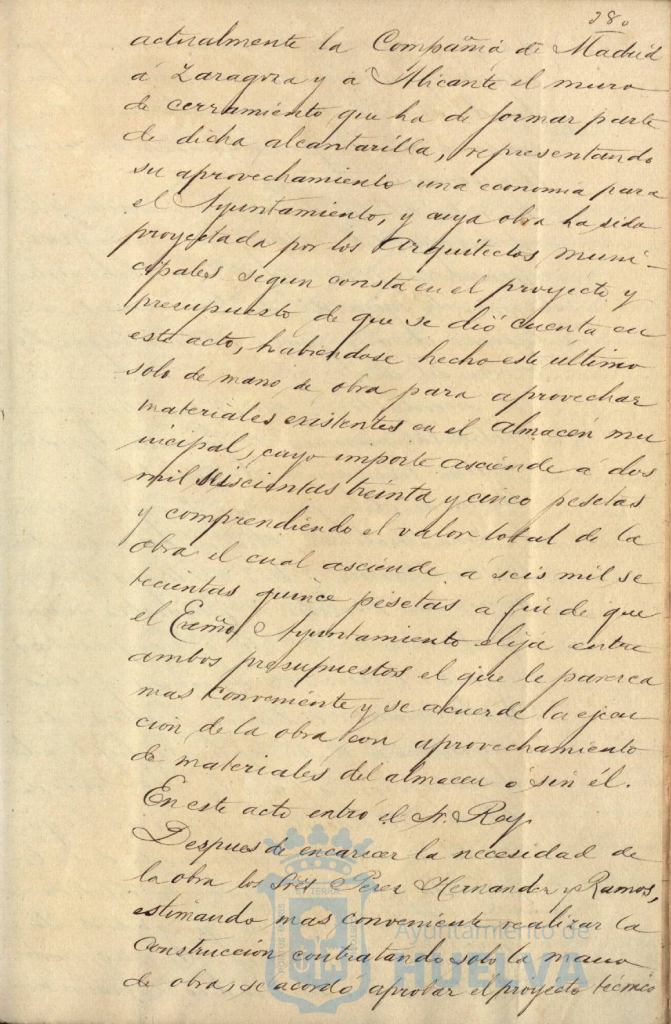 280
actualmente la Compañia de Madrid
á Zaragoza y á Alicante el muro
de cerramiento que ha de formar parte
de dicha alcantarilla, representando
su aprovechamiento una economia para
el Ayuntamiento, y cuya obra ha sido
proyectada por los Arquitectos muni-
cipales segun consta en el proyecto y
presupuesto de que se dió cuenta en
este acto, habiendose hecho este último
solo de mano de obra para aprovechar
materiales existentes en el almacén mu
nicipal, cuyo importe asciende á dos
mil seiscientas treinta y cinco pesetas
y comprendiendo el valor total de la
obra el cual asciende á seis mil se
tecientas quince pesetas á fin de que
el Excmo Ayuntamiento elija entre
ambos presupuestos el que le parezca
mas conveniente y se acuerde la ejecu
ción de la obra con aprovechamiento
de materiales del almacen ó sin él.
En este acto entró el Sr. Rey.
Despues de encarecer la necesidad de
la obra los Sres Perez Hernandez y Ramos,
estimando mas conveniente realizar la
construcción contratando solo la mano
de obra, se acordó aprobar el proyecto técnico
Ayuntamiento de
HUELVA